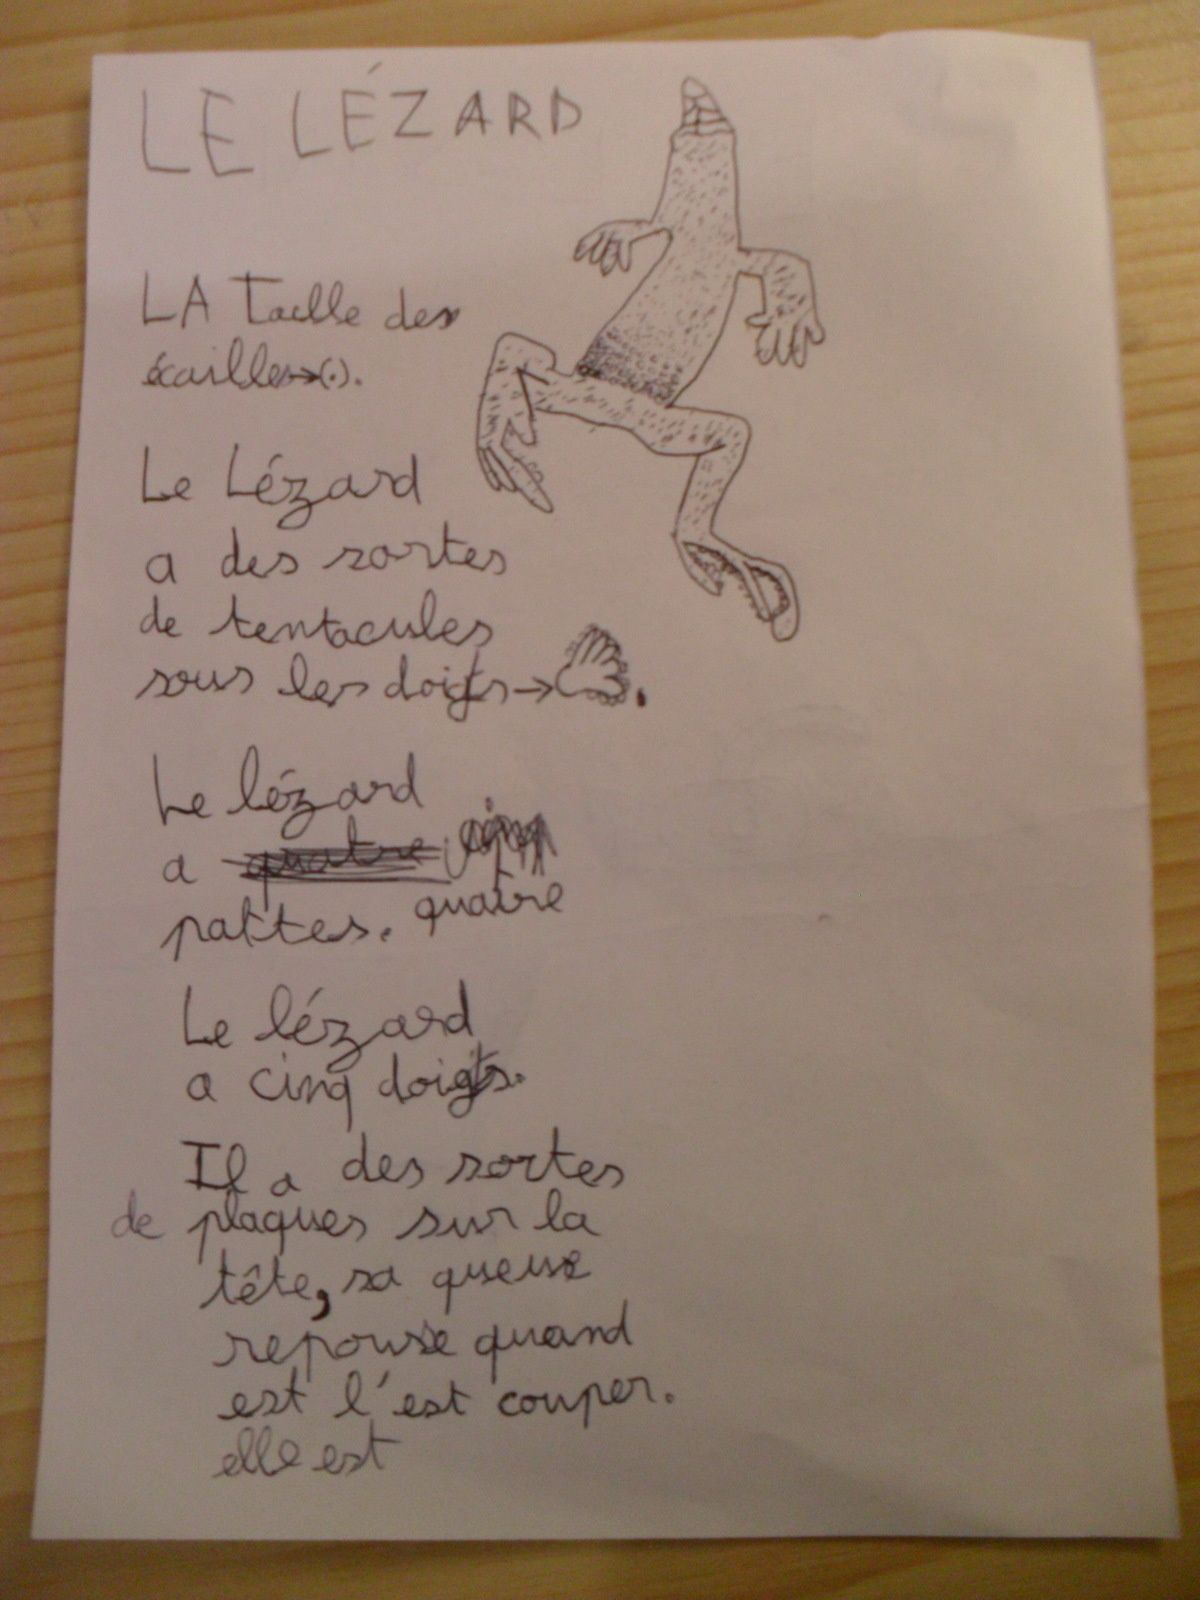 LE LÉZARD
LA Taille des
écailles→(.).
Le Lézard
a des sortes
de tentacules
sous les doigts→.
Le lézard
a quatre cinq
pattes. quatre
Le lézard
a cinq doigts.
Il a des sortes
de plaques sur la
tête, sa queue
repousse quand
est l'est couper.
elle est